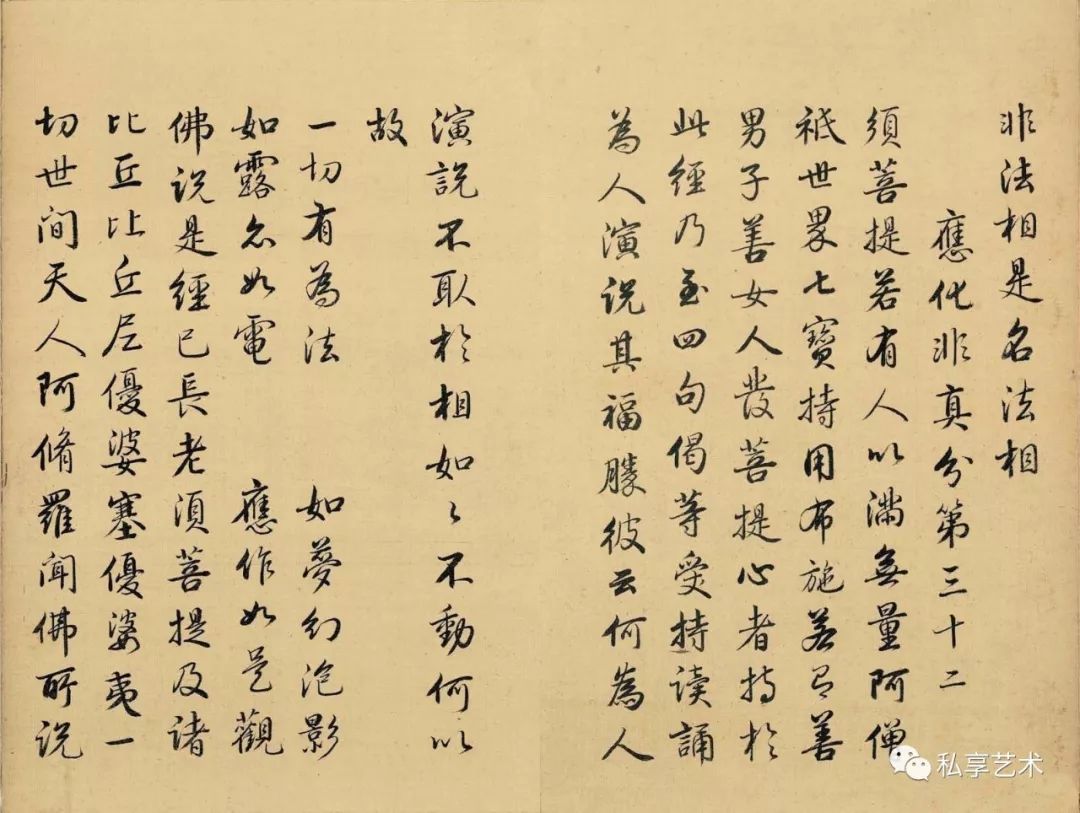 非法相是名法相
應化非真分第三十二
須菩提若有人以滿無量阿僧
祇世界七寶持用布施若有善
男子善女人發菩提心者持於
此經乃至四句偈等受持读誦
為人演说其福勝彼云何為人
演説不取於相如々不動何以
故
一切有為法 如夢幻泡影
如露亦如電 應作如是觀
佛说是經已長老須菩提及诸
比丘比丘尼優婆塞優婆夷一
切世间天人阿脩羅闻佛所说
私享艺术